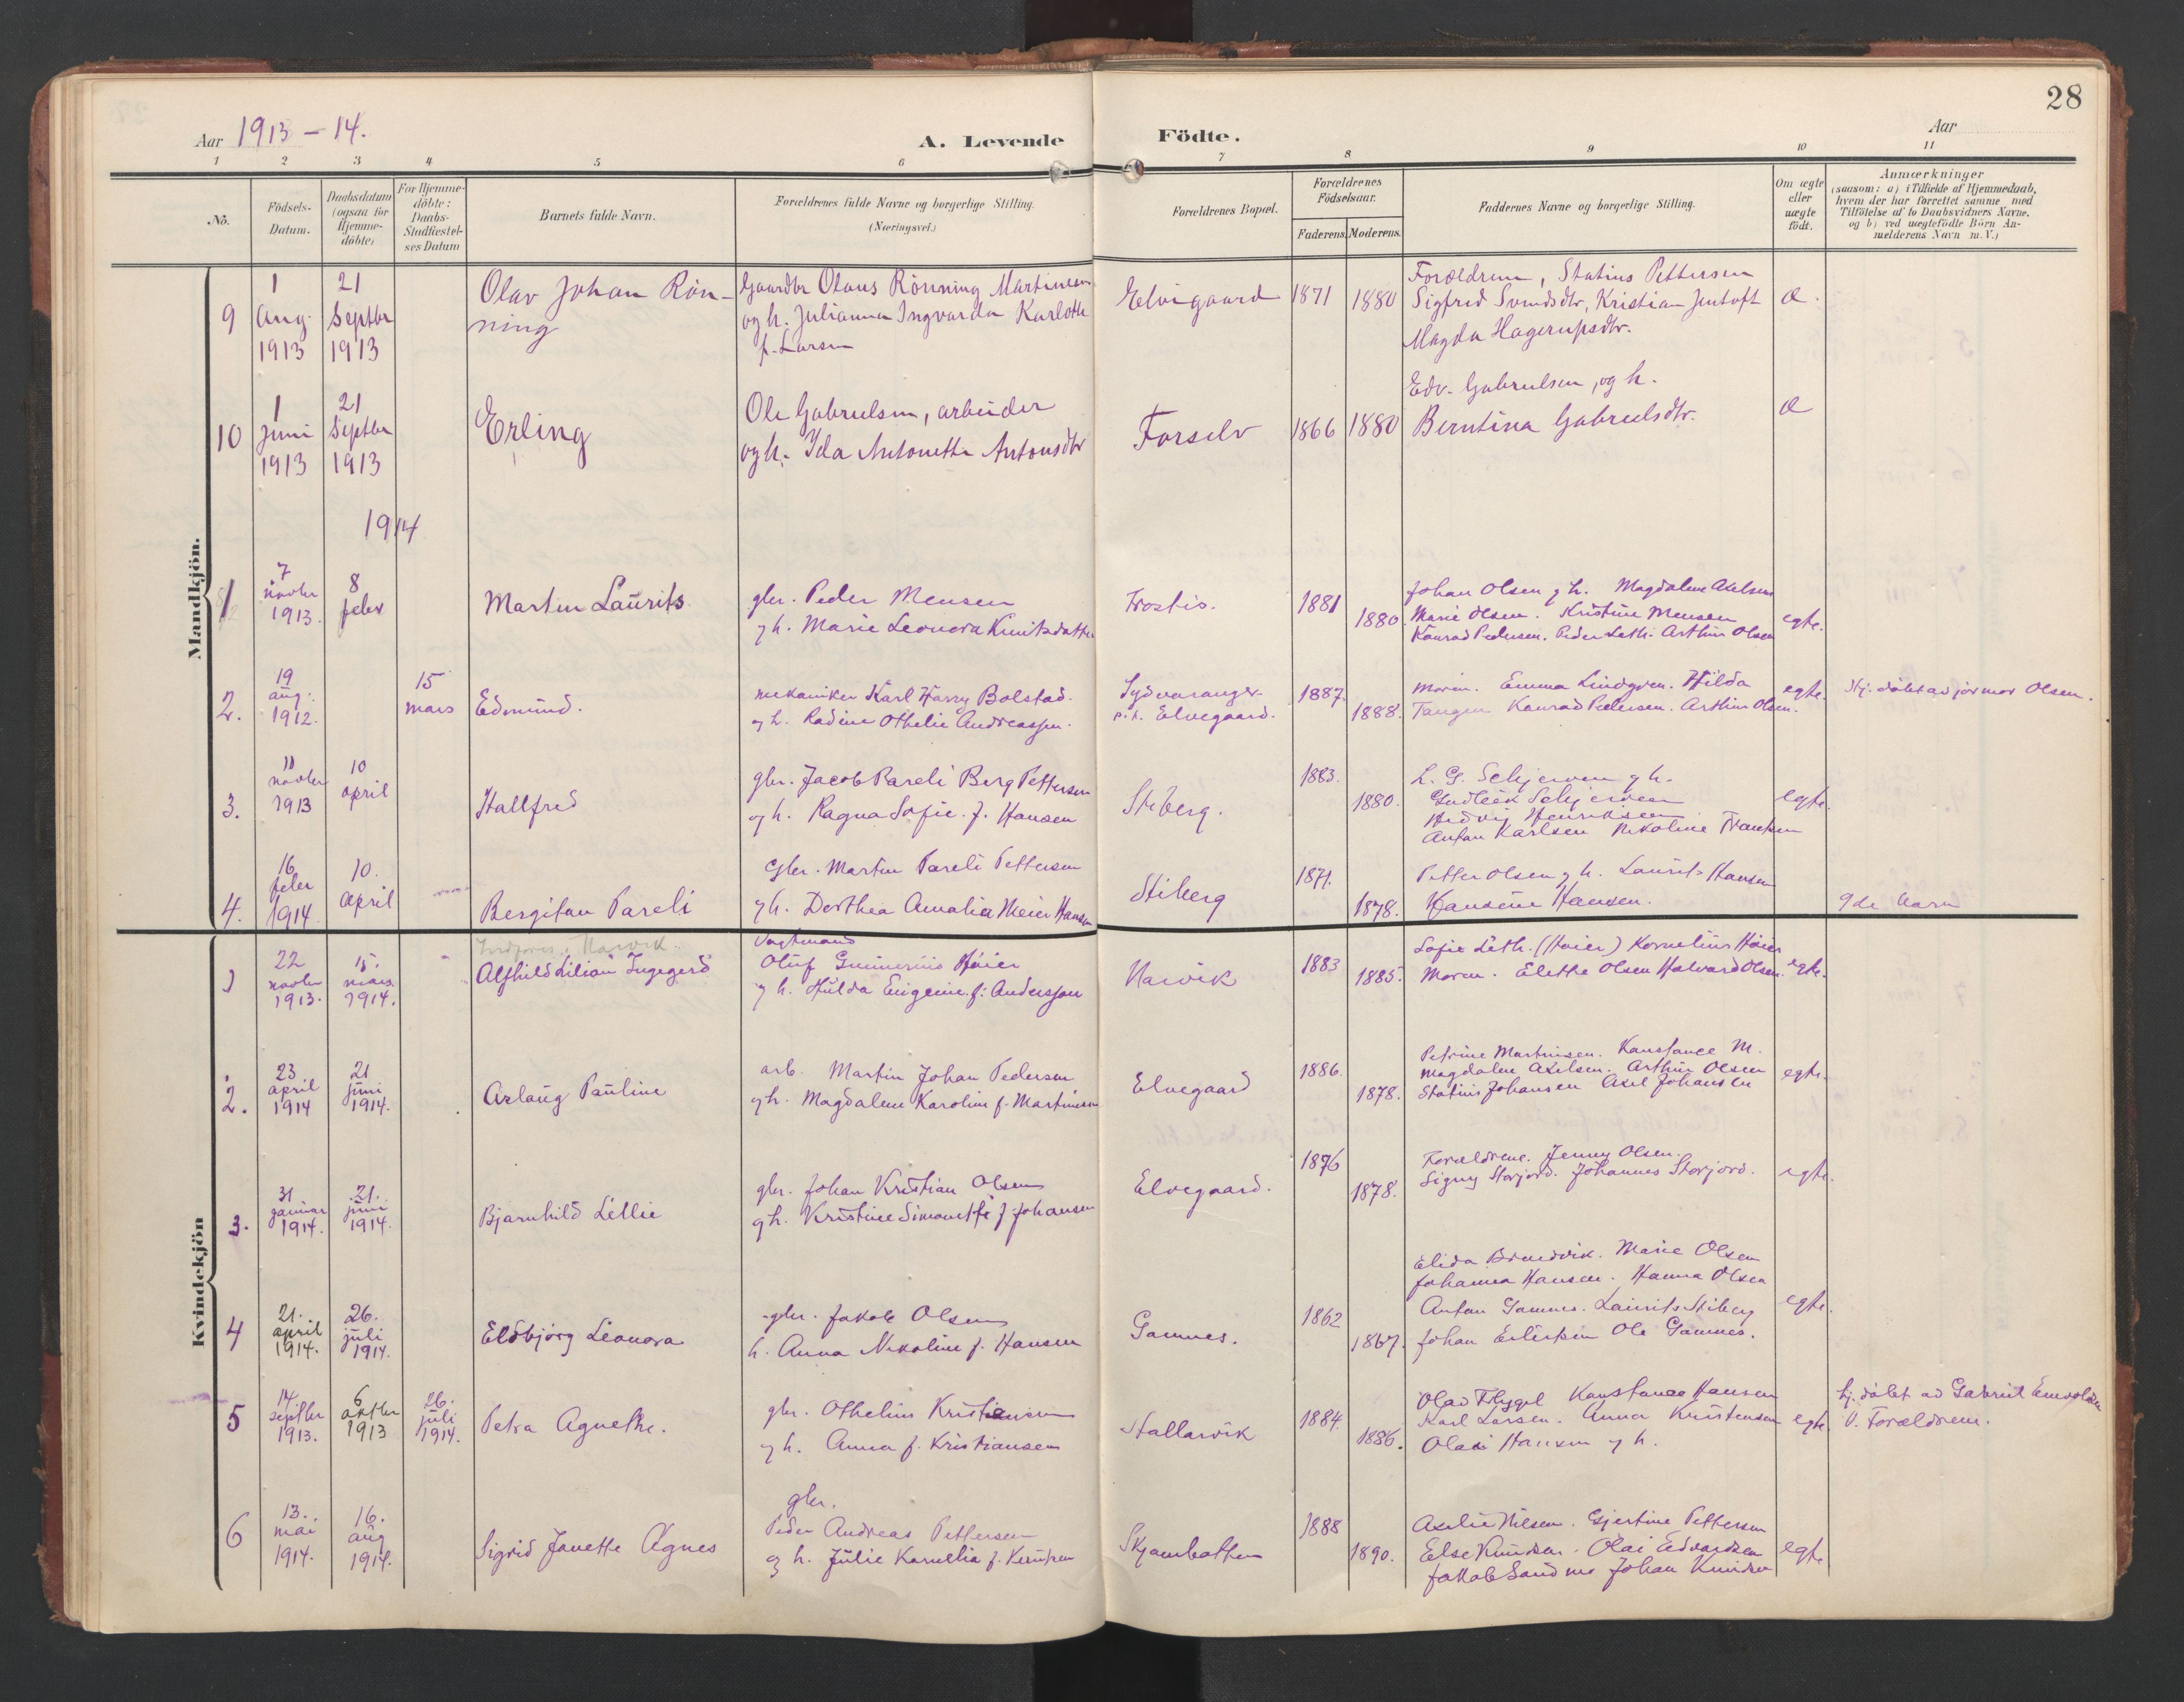 28
Aar 1913 – 14.
A. Levende Födte.
Aar
1 2 3 4 5 6 7 8 9 10 11
No.
Födsels-
Datum.
Daabsdatum
(ogsaa for
Hjemme-
döbte)
For Hjemme-
döbte:
Daabs-
Stadfæstel-
ses Datum
Barnets fulde Navn.
Forældrenes fulde Navne og borgerlige Stilling.
(Næringsvei.)
Forældrenes Bopæl.
Forældrenes
Födselsaar.
Faderens. Moderens.
Faddernes Navne og borgerlige Stilling.
Om ægte
eller
uægte
födt.
Anmærkninger
(saasom: a) i Tilfælde af Hjemmedaab,
hvem der har forrettet samme med
Tilföielse af to Daabsvidners Navne,
og b) ved uægtefödte Börn An-
melderens Navn m. V.)
Mandkjön.
9
1
Aug.
1913
21
Septbr
1913
Olav Johan Rön-
ning
Gaardbr Olaus Rönning Martinsen
og h. Julianna Ingvarda Karlotte
f. Larsen
Elvigaard
1871
1880
Forældrene, Statius Pettersen
Sigfred Svendsdtr, Kristian Jentoft
Magda Hagerupsdtr.
Æ.
10
1
Juni
1913
21
Septbr
1913
Erling
Ole Gabrielsen, arbeider
og h. Ida Antonette Antonsdtr
Forselv
1866
1880
Edv. Gabrielsen, og h.
Berntina Gabrielsdtr.
Æ
1914
1
7
novbr
1913.
8
febr
Martin Laurits
gbr. Peder Mensen
og h. Marie Leonora Knutsdatter
Trostis.
1881
1880.
Johan Olsen og h. Magdalene Axelsen
Marie Olsen. Kristine Mensen
Konrad Pedersen. Peder Leth. Arthur Olsen
egte.
2.
19
aug.
1912.
15
mars
Edmund.
mekaniker Karl Harry Bolstad.
og h. Radine Othelie Andreassen.
Sydvaranger
p.t. Elvegaard.
1887.
1888.
Moren. Emma Lindgren. Hilda
Tangen Konrad Pedersen. Arthur Olsen.
egte.
Hj. döbt av jormor Olsen.
3.
11
novbr
1913
10
april
Hallfred
gbr. Jacob Pareli Berg Pettersen
og h. Ragna Sofie f. Hansen
Stiberg.
1883.
1880.
L. G. Schjerven og h.
Gudleik Schjerven
Hedvig Henriksen
Anton Karlsen Nikoline Frantzen
egte.
4.
16
febr
1914
10.
april
Bergitan Pareli
Gbr. Martin Pareli Pettersen
og h. Dorthea Amalia Meier Hansen
Stiberg
1871.
1878.
Petter Olsen og h. Laurits Hansen
Hansine Hansen.
9de barn
Kvindekjön
1
22
novbr
1913.
15.
mars
1914.
Indføres i Narvik.
Alfhild Lilian Ingegerd
Vagtmand
Oluf Gunnerius Høier
og h. Hulda Eugenie f. Andersson
Narvik
1883
1885.
Sofie Leth. (Høier) Kornelius Høier
Moren. Elethe Olsen Halvard Olsen.
egte.
2.
23
april
1914
21
juni
1914.
Aslaug Pauline
arb. Martin Johan Pedersen
og h. Magdalene Karoline f. Martinsen
Elvegaard
1886.
1878.
Petrine Martinsen. Konstance M.
Magdalene Axelsen. Arthur Olsen
Statius Johansen Axel Johansen
egte.
3.
31
januar
1914.
21.
juni
1914.
Bjarnhild Lillie
gbr. Johan Kristian Olsen
og h. Kristine Simonette f. Johansen
Elvegaard.
1876
1878.
Forældrene. Jenny Olsen.
Signy Storjord. Johannes Storjord.
egte.
4
21.
april
1914.
26.
juli
1914.
Eldbjörg Leonora
gbr. Jakob Olsen
h. Anna Nikoline f. Hansen
Gamnes.
1862
1867.
Elida Brandvik. Marie Olsen
Johanna Hansen. Hanna Olsen
Anton Gamnes. Laurits Stiberg
Johan Eriksen Ole Gamnes.
egte.
5
14
septbr
1913.
6
oktbr
1913
26.
juli
1914.
Petra Agnethe.
gbr. Othelius Kristensen
og h. Anna f. Kristiansen
Hallarvik
1884.
1886.
Olav Flygel Konstance Hansen
Karl Larsen. Anna Kristensen
Olai Hansen og h.
egte.
hj. döbt av Gabriel Enevoldsen
V. Forældrene.
6
13.
mai
1914.
16.
aug
1914.
Sigrid Janette Agnes
gbr.
Peder Andreas Pettersen
og h. Julie Kornelia f. Knutsen
Skjambatten
1888
1890.
Axelie Nilsen. Gjertine Pettersen
Else Knudsen. Olai Edvardsen
Jakob Sandmo Johan Knudsen
egte